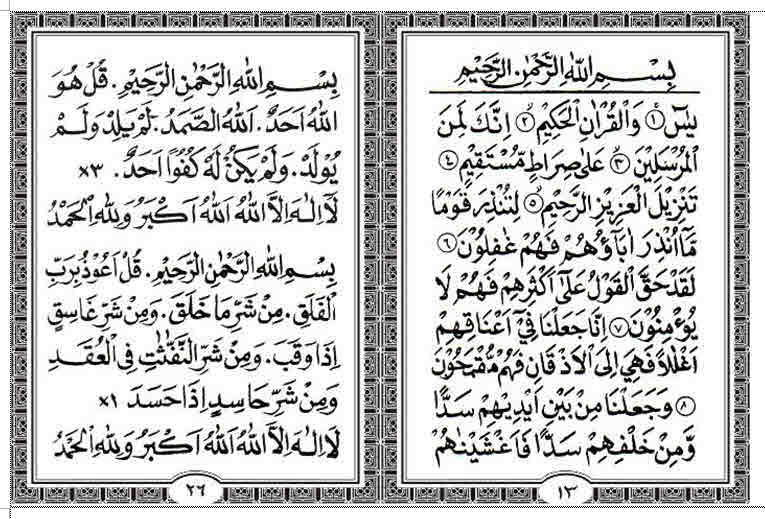 بِسْــمِ اللهِ الرَّحْمٰنِ الرَّحِيْمِ
يٰسٓ ﴿١﴾ وَالْقُرْاٰنِ الْحَكِيْمِ ﴿٢﴾ اِنَّكَ لَمِنَ
الْمُرْسَلِيْنَ ﴿٣﴾ عَلٰى صِرَاطٍ مُّسْتَقِيْمٍ ﴿٤﴾
تَنْزِيْلَ الْعَزِيْزِ الرَّحِيْمِ ﴿٥﴾ لِتُنْذِرَ قَوْمًا
مَّآ اُنْذِرَ اٰبَآؤُهُمْ فَهُمْ غٰفِلُوْنَ ﴿٦﴾
لَقَدْ حَقَّ الْقَوْلُ عَلٰٓى اَكْثَرِهِمْ فَهُمْ لَا
يُؤْمِنُوْنَ ﴿٧﴾ اِنَّا جَعَلْنَا فِيْٓ اَعْنَاقِهِمْ
اَغْلٰلًا فَهِيَ اِلَى الْاَذْقَانِ فَهُمْ مُّقْمَحُوْنَ
﴿٨﴾ وَجَعَلْنَا مِنْ بَيْنِ اَيْدِيْهِمْ سَدًّا
وَّمِنْ خَلْفِهِمْ سَدًّا فَاَغْشَيْنٰهُمْ
١٣
بِسْــمِ اللهِ الرَّحْمٰنِ الرَّحِيْمِ. قُلْ هُوَ
اللهُ اَحَدٌ. اَللهُ الصَّمَدُ. لَمْ يَلِدْ وَلَـمْ
يُوْلَدْ. وَلَمْ يَكُنْ لَهُ كُفُوًا اَحَدٌ. ×٣
لَآ اِلٰـهَ اِلَّا اللهُ اَللهُ اَكْبَرُ وَلِلهِ الْحَمْدُ
بِسْــمِ اللهِ الرَّحْمٰنِ الرَّحِيْمِ. قُلْ اَعُوْذُ بِرَبِّ
الْفَلَقِ. مِنْ شَرِّ مَا خَلَقَ. وَمِنْ شَرِّ غَاسِقٍ
اِذَا وَقَبَ. وَمِنْ شَرِّ النَّفّٰثٰتِ فِى الْعُقَـدِ
وَمِنْ شَرِّ حَاسِدٍ اِذَا حَسَدَ ×١
لَآ اِلٰـهَ اِلَّا اللهُ اَللهُ اَكْبَرُ وَلِلهِ الْحَمْدُ
٢٦